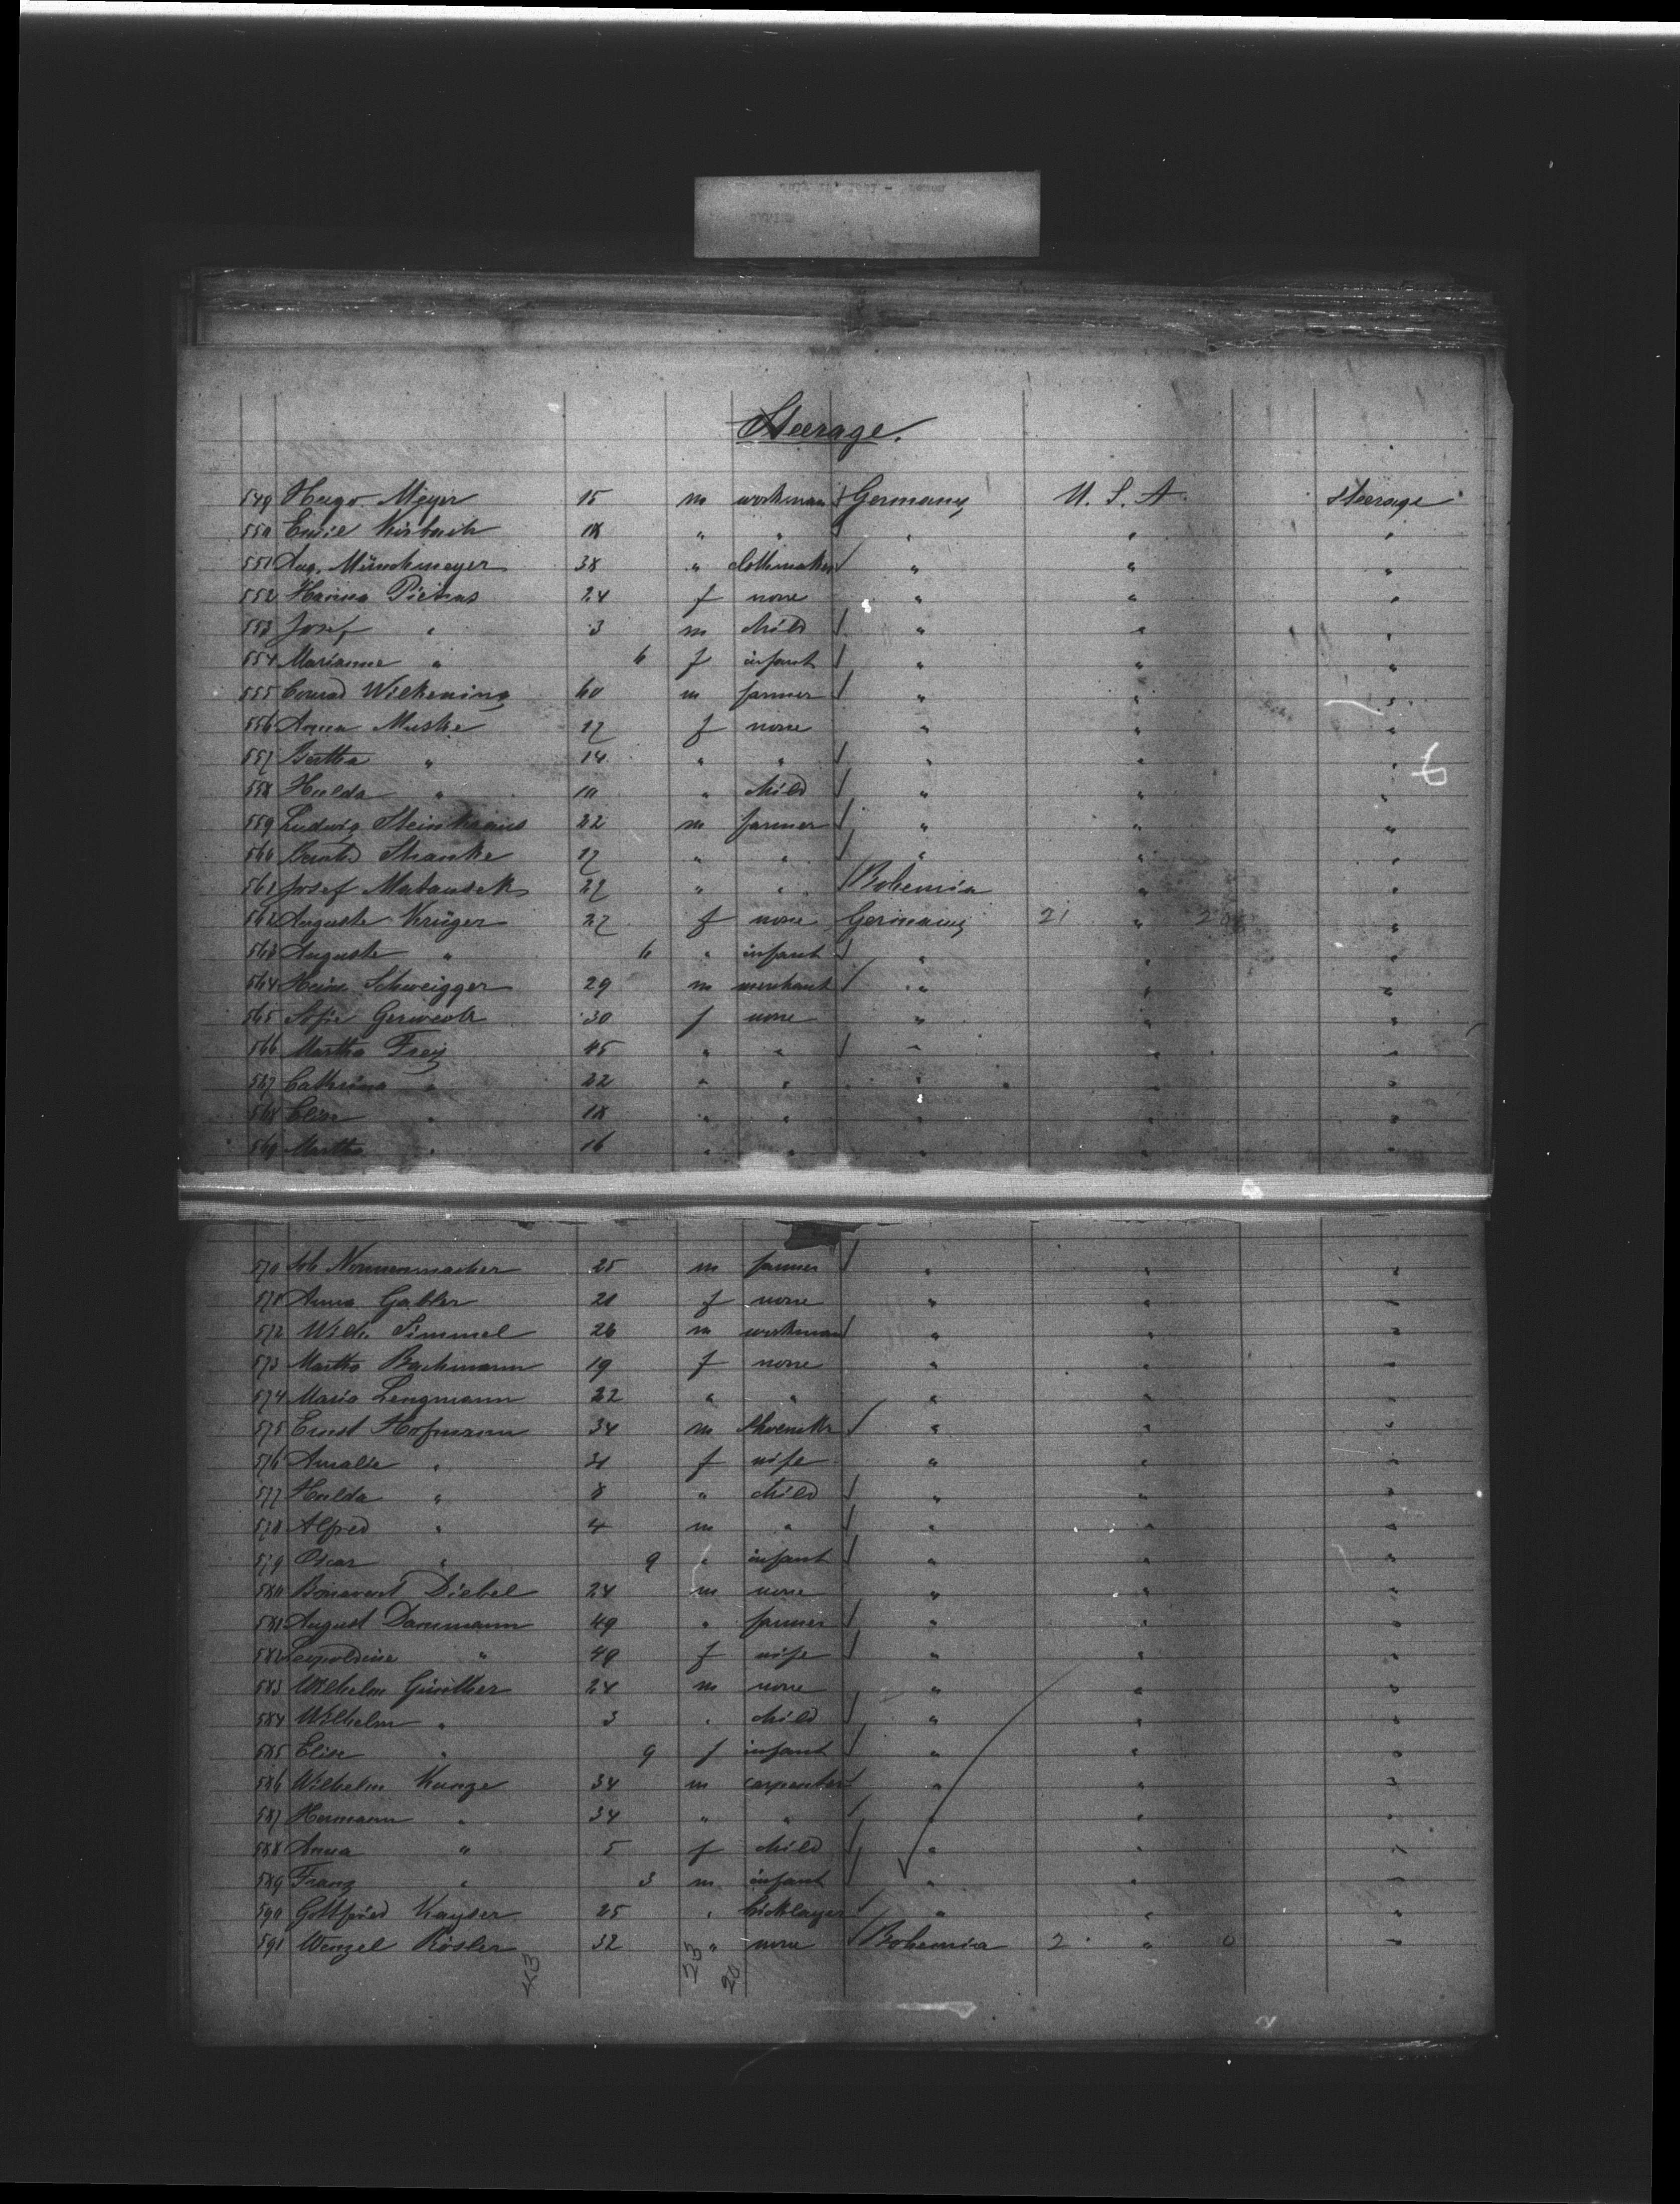 Steerage.
549 Hugo Meyer 15 m workman Germany U. S. A. steerage
550 Emil Kirbach 18 " " " " "
551 Aug. Münchmeyer 38 " clothmaker " " "
552 Hanna Pietras 24 f none " " "
553 Josef " 3 m child " " "
554 Marianne " 6 f infant " " "
555 Conrad Wilkening 60 m farmer " " "
556 Anna Muske 17 f none " " "
557 Bertha " 14 " " " " "
558 Hulda " 10 " child " " "
559 Ludwig Steinkraus 22 m farmer " " "
560 Shanke 17 " " " " "
561 Josef Matausek 27 " " Bohemia " "
562 Auguste Krüger 27 f none Germany 21 " 20 "
563 Auguste " 6 " infant " " "
564 Heinr. Schweigger 29 m merchant " " "
565 Sofie 30 f none " " "
566 Martha Frey 45 " " " " "
567 Cathrina " 22 " " " " "
568 Elise " 18 " " " " "
569 Martha " 16 " " " " "
570 Joh Nonnenmacher 25 m farmer " " "
571 Anna Gabler 21 f none " " "
572 Wilh. Simmel 26 m workman " " "
573 Martha Bachmann 19 f none " " "
574 Maria Lengmann 22 " " " " "
575 Ernst Hofmann 34 m " " "
576 Amalie " 31 f wife " " "
577 Hulda " 8 " child " " "
578 Alfred " 4 m " " " "
579 Oscar " 9 " infant " " "
580 Diebel 24 m none " " "
581 August Dammann 49 " farmer " " "
582 Leopoldine " 49 f wife " " "
583 Wilhelm Günther 24 m none " " "
584 Wilhelm " 3 " child " " "
585 Elise " 9 f infant " " "
586 Wilhelm Kunze 34 m carpenter " " "
587 Hermann " 34 " " " " "
588 Anna " 5 f child " " "
589 Franz " 3 m infant " " "
590 Gottfried Kayser 25 " bricklayer " " "
591 Wenzel Rösler 32 " none Bohemia 2 " 0 "
43 23 20